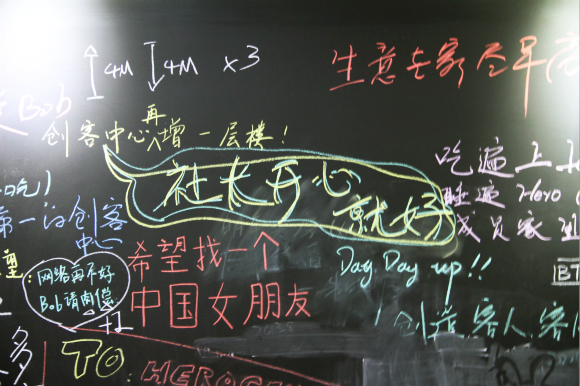 4M 4M ×3
Bob
创客中心再增一层楼!
社长开心
就好
生意专家尽早
吃遍上
睡遍 Hero
成员家
吃)
第一的创客
中心
希望找一个
中国女朋友
Day Day up!!
网络再不好
Bob请肉偿
创造,客人,客
BT
TO: HEROC